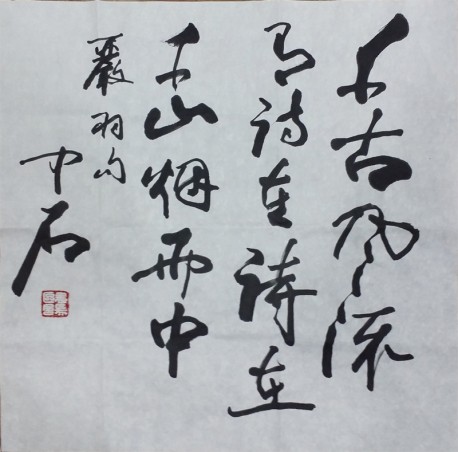 千古风流
有诗在詩在
千山烟雨中
嚴羽句
中石